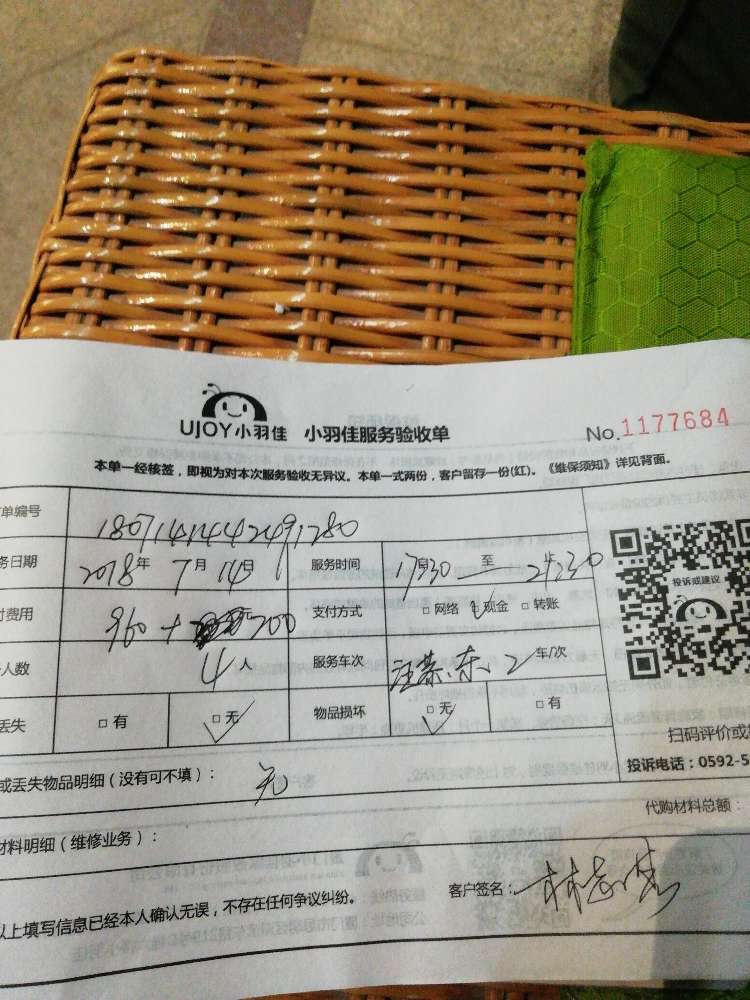 UJOY小羽佳 小羽佳服务验收单 No.1177684
本单一经核签,即视为对本次服务验收无异议。本单一式两份,客户留存一份(红)。《维保须知》详见背面。
单编号 18071414442491280
务日期 2018年 7月 14日 服务时间 17:30 至 21:30
费用 960+ 200 支付方式 □网络 □现金 □转账
人数 4人 服务车次 2 车/次
丢失 □有 □无 物品损坏 □无 □有
投诉或建议
扫码评价或
投诉电话:0592-5
或丢失物品明细(没有可不填): 无
代购材料总额:
材料明细(维修业务):
客户签名:
以上填写信息已经本人确认无误,不存在任何争议纠纷。